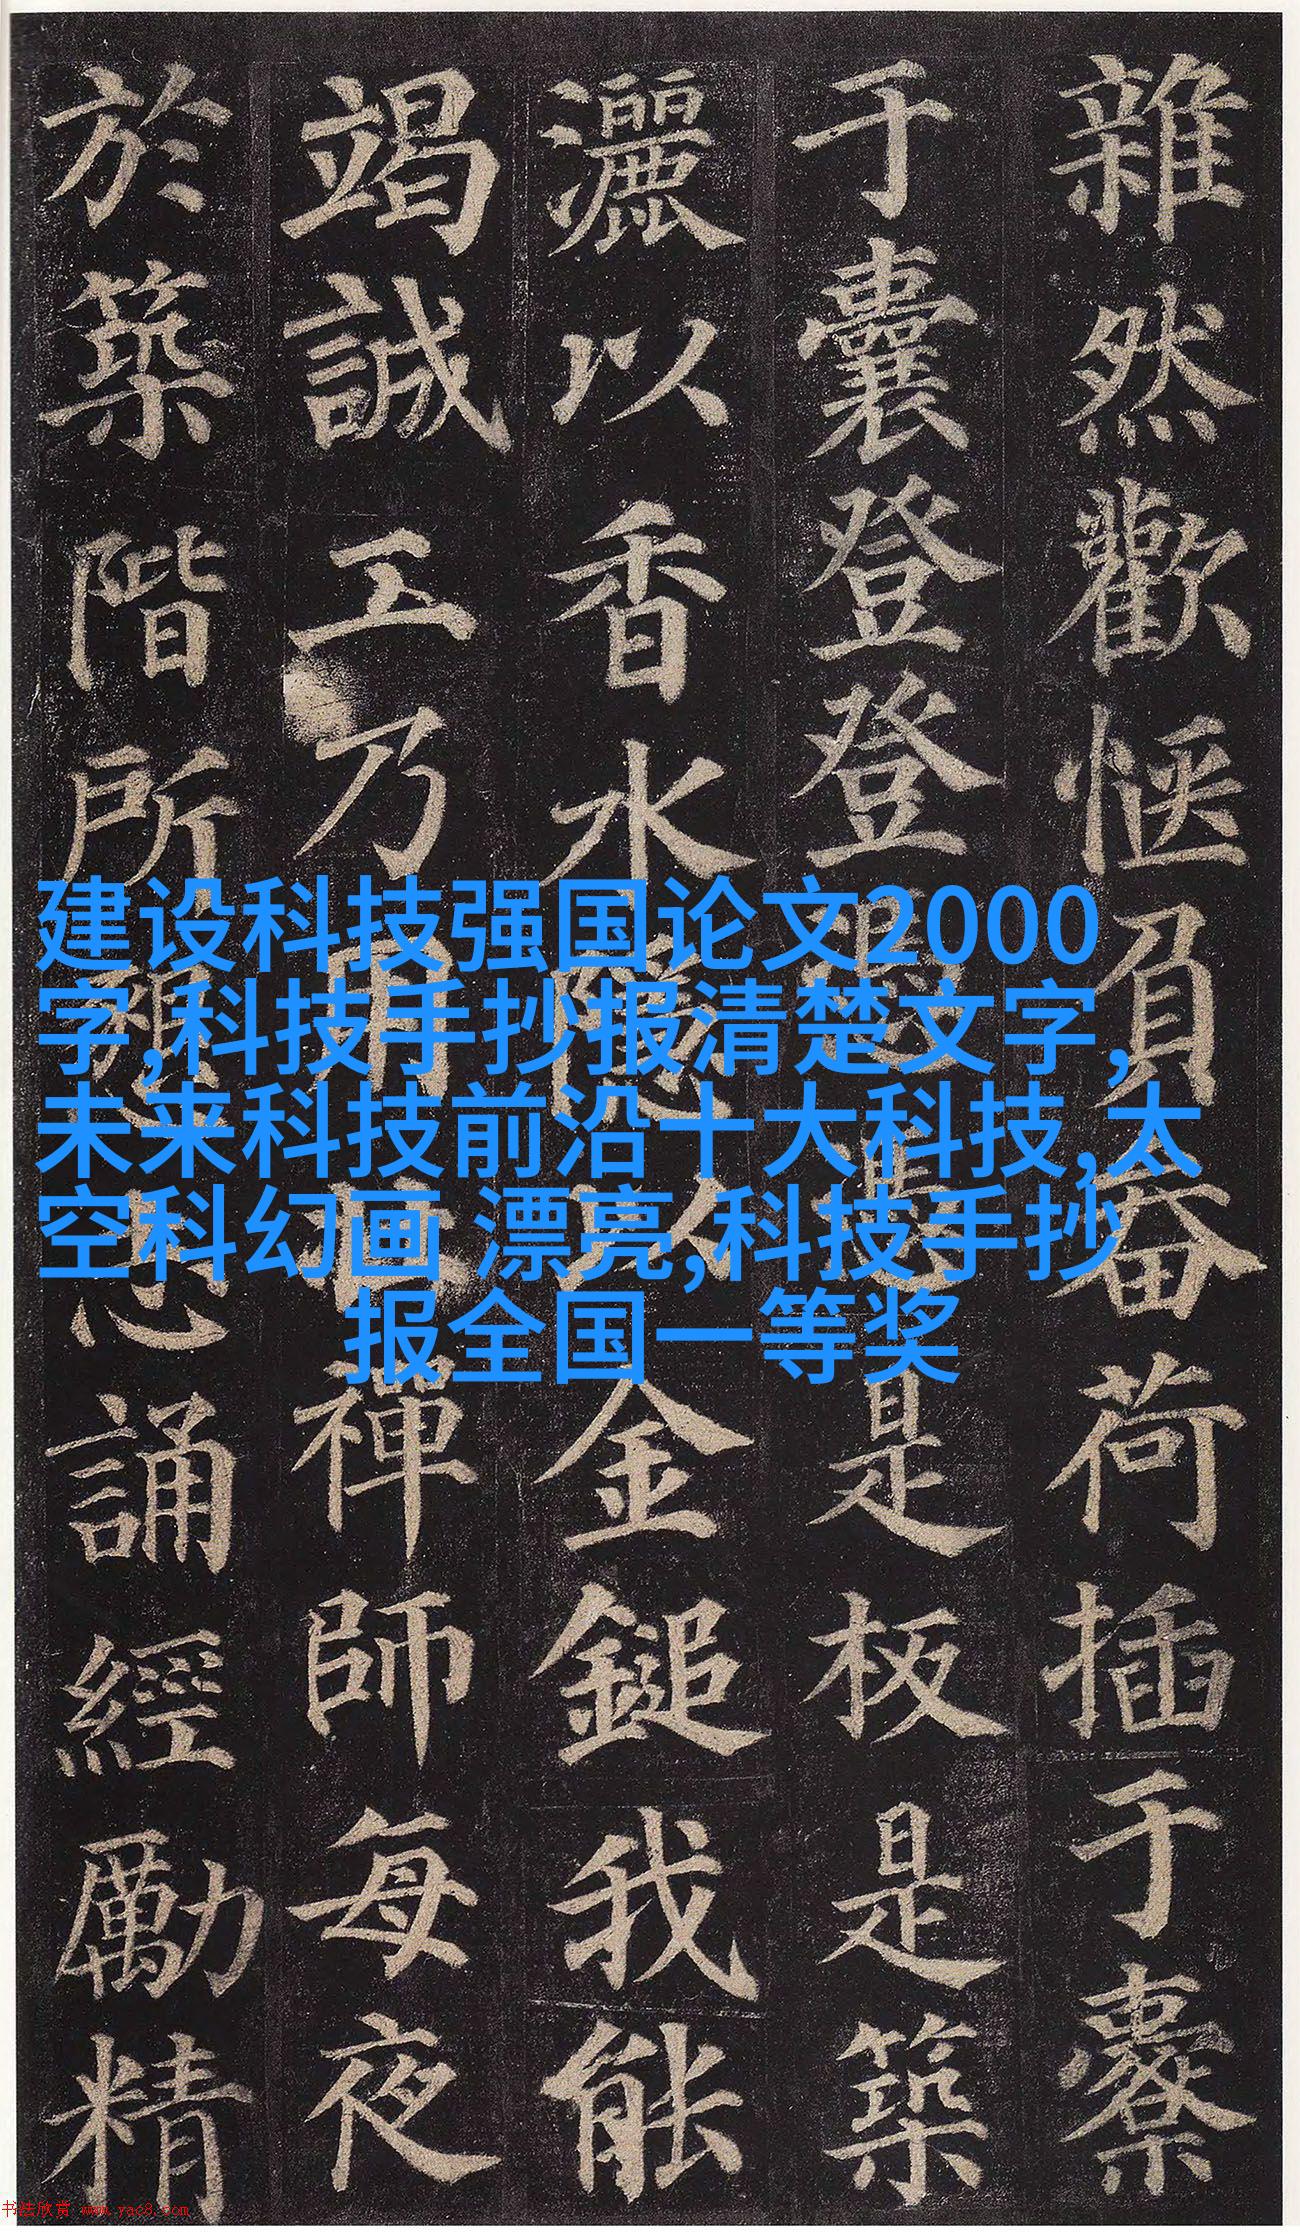 雜然歡愜負畚荷插于橐
于囊登登憑憑是板是築
灑以香水隱以金鎚我能
竭誠工乃用禪師每夜
於築階所懇志誦經勵精
建设科技强国论文2000
字,科技手抄报清楚文字,
未来科技前沿十大科技,太
空科幻画 漂亮,科技手抄
报全国一等奖
书法欣赏 www.yac8.com